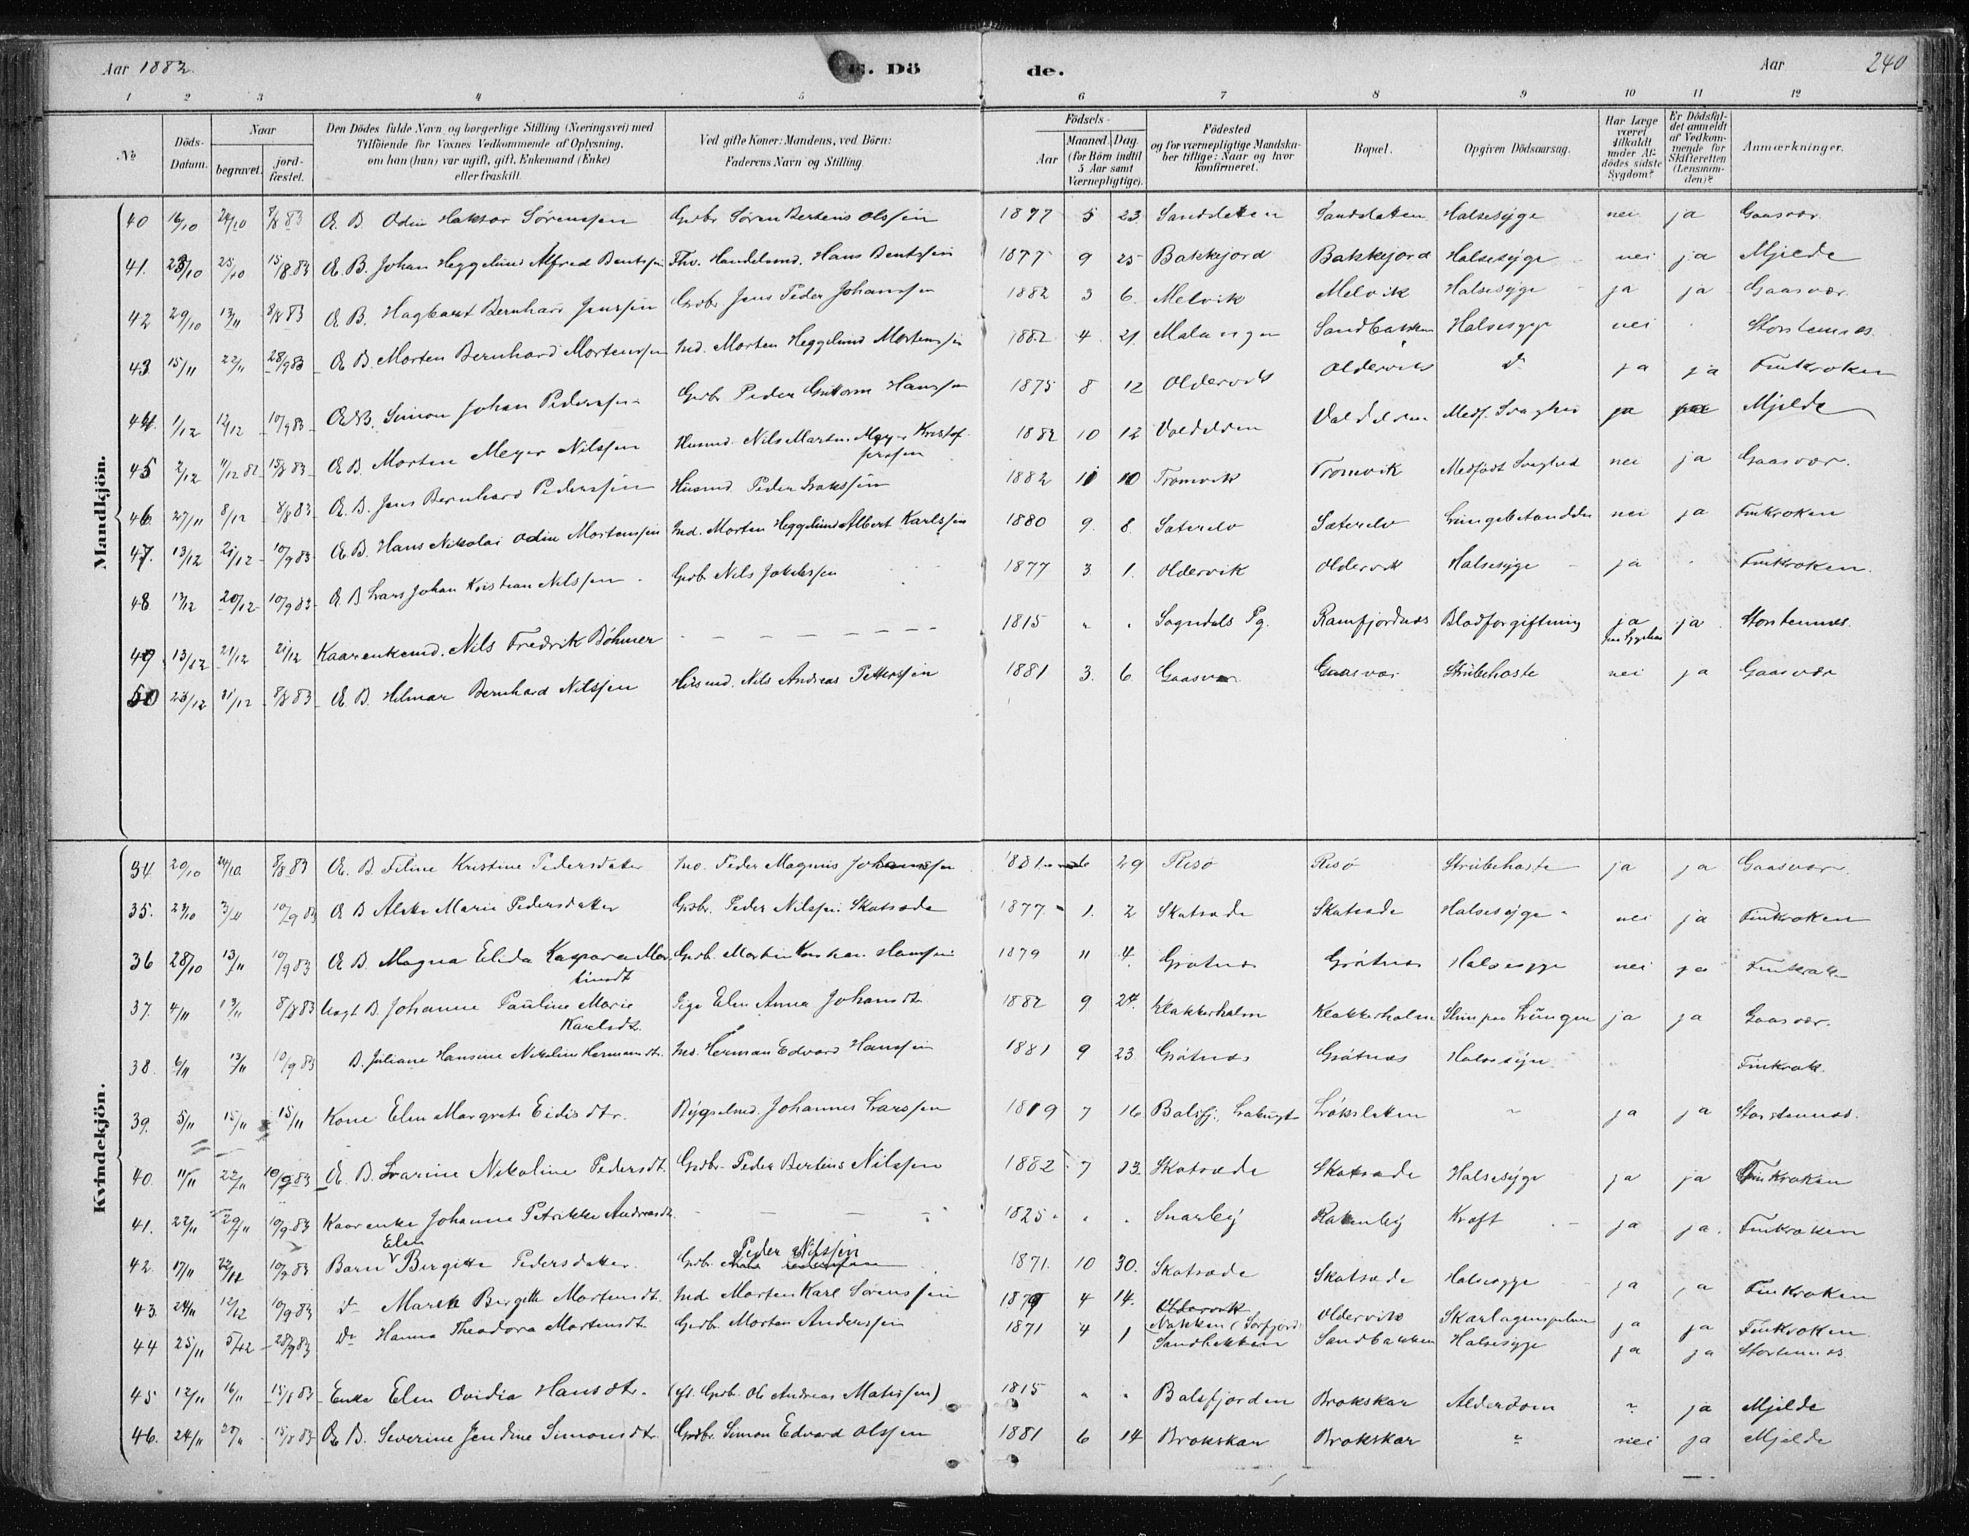 Aar 1882. E. Dö de. Aar 240
1 2 3 4 5 6 7 8 9 10 11 12
No. Döds-Datum. Naar begravet. jord-fæstet. Den Dödes fulde Navn og borgerlige Stilling (Næringsvei) med Tilföiende for Voxnes Vedkommende af Oplysning, om han (hun) var ugift, gift, Enkemand (Enke) eller fraskilt. Ved gifte Koner: Mandens, ved Börn: Faderens Navn og Stilling. Födsels- Aar Maaned Dag (for Börn indtil 5 Aar samt Værnepligtige). Födested og for værnepligtige Mandskaber tillige: Naar og hvor konfirmeret. Bopæl. Opgiven Dödsaarsag. Har Læge været tilkaldt under Afdödes sidste Sygdom? Er Dödsfaldet anmeldt af Vedkommende for Skifteretten (Lensmanden)? Anmærkninger.
Mandkjön.
40 16/10 24/10 8/8 83 Æ. B. Odin Haktor Sørenssen Grdbr Søren Bertens Olssen 1877 5 23 Sandsleten Sandsleten Halsesyge nei ja Gaasvær
41. 23/10 25/10 15/8 83 Æ. B. Johan Heggelund Alfred Bentssen Fhv. Handelsmd. Hans Bentssen 1877 9 25 Bakkejord Bakkejord Halsesyge nei ja Mjelde
42 29/10 13/11 8/8 83 Æ B. Hagbart Bernhard Jenssen Grdbr Jens Peder Johanssen 1882 3 6. Melvik Melvik Halsesyge ja ja Gaasvær
43. 15/11 22/11 28/9 83 Æ B. Morten Bernhard Mortenssen Ind. Morten Heggelund Mortenssen 1882 4 21 Malangen Sandbakken Halsesyge nei Storstennes.
44. 1/12 12/12 10/9 83 Æ B. Simon Johan Pederssen Grdb. Peder Guttorm Hanssen 1875 8 12 Oldervik Oldervik do ja ja Finkroken
45 2/12 11/12 82 15/8 83 Æ B. Morten Meyer Nilssen Husmd. Nils Martin Meyer Kristofferssen 1882 10 12 Voldelven Medf. Svaghed ja Mjelde
46. 27/11 8/12 8/8 83 Æ. B. Jens Bernhard Pederssen Husmd. Peder Isakssen 1882 11 10 Tromvik Tromvik Medfødt Svaghed nei ja Gaasvær.
47. 13/12 21/12 10/9 83 Æ B. Hans Nikolai Odin Mortenssen Ind. Morten Heggelund Albert Karlssen 1880 9. 8. Saterelv Sæterelv Lungebetændelse nei ja Finkroken
48 13/12 20/12 10/9 83 Æ B Lars Johan Kristian Nilssen Grdb. Nils Jakobssen 1877 3. 1. Oldervik Oldervik Halsesyge ja Finkroken.
49 13/12 21/12 21/12 Kaarenkemd. Nils Fredrik Böhmer 1815 " " Sogndals Pg. Ramfjordnes Blodforgiftning ja ja Storstennes.
50 23/12 31/12 8/8 83 Æ B. Hilmar Bernhard Nilssen Husmd. Nils Andreas Petterssen 1881 3. 6 Gaasvær Gaasvær Strubehoste nei ja Gaasvær
Kvindekjön.
34 20/10 24/10. 8/8 83 Æ. B. Feline Kristine Pedersdatter Ind. Peder Magnus Johanssen 1881 6 29 Risø Risø Strubehoste ja ja Gaasvær.
35. 27/10 3/11 10/9 83 Æ B Marie Pedersdatter Grdbr. Peder Nilssen Skatsøde 1877 1. 2 Skatsøde Skatsøde Halsesyge nei ja Finkroken
36 28/10 13/11 10/9 83 Æ B. Magna Elida Kaspara Martinsdt Grdb. Martin Kristian Hanssen 1879 11 4 Grøtnes Grøtnes Halsesyge nei ja Finkrok.
37. 4/11 13/11 8/8 83 Uægt B. Johanne Pauline Marie Karlsdt. Pige Elen Anna Johansdt 1882 9 24. Klakkerholm Klakkerholm Lunger ja ja Gaasvær.
38. 6/11 13/11 10/9 83 B. Juliane Hansine Nikoline Hermansdt. Ind. Herman Edvard Hanssen 1881 9 23 Grøtnes Grøtnes Halsesyge Finkrok.
39. 5/11 15/11 15/11 Kone Elen Margrete Eidisdtr. Bygselmd. Johannes Larssen 1819 7 16 Balsfj. Løksletten " ja ja Storstennes.
40. 11/11 22/11 10/9 83 Æ B. Lvarine Nikoline Pedersdt. Grdbr. Peder Bertens Nilssen 1882 7 13. Skatsøde Skatsøde Halsesyge ja ja Finkroken
41. 22/11 29/11 10/9 83 Kaarenke Johanne Petrikke Andreasdt. 1825 " " Snarby Kræft ja ja. Finkroken
42. 17/11 22/11 10/9 83 Barn Elen Birgitte Pedersdatter Grdb. Peder Nilssen 1871. 10 30. Skatsøde Skatsøde Halsesyge ja ja Finkroken
43. 24/11 12/12 10/9 83 do Maren Birgitte Mortensdt. Ind Morten Karl Sørenssen 1879 4 14. Oldervik Nakken (Sørfjord) Oldervik Skarlagensfeber ja ja Finkroken.
44 25/11 5/12 28/9 83 do Hanna Theodora Mortensdt. Grdb. Morten Anderssen 1871 4 1 Sandbakken Sandbakken Halsesyge ja ja Storstennes.
45 12/11 16/11 15/8 83 Enke Elen Ovidia Hansdtr. (f. Grdb. Ole Andreas Matissen) 1815 " " Balsfjorden Brokskar Alderdom " ja Mjelde
46. 24/11 28/11 15/8 83 Æ B. Severine Jendine Simonsdt Grdbr. Simon Edvard Olssen 1881 6 14 Brokskar Brokskar " nei ja Mjelde